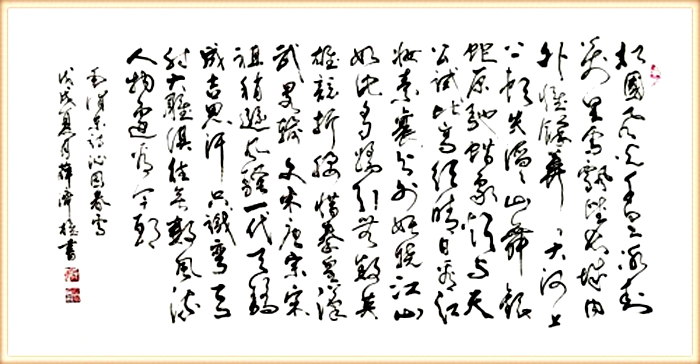 北國風光千里冰封
萬里雪飄望長城內
外惟餘莽莽大河上
下頓失滔滔山舞銀
蛇原馳蠟象欲與天
公試比高須晴日看紅
妝素裹分外妖嬈江山
如此多嬌引無數英
雄競折腰惜秦皇漢
武略輸文采唐宗宋
祖稍遜風騷一代天驕
成吉思汗只識彎弓
射大雕俱往矣數風流
人物還看今朝
毛澤東詩沁園春雪
戊戌夏月薛書